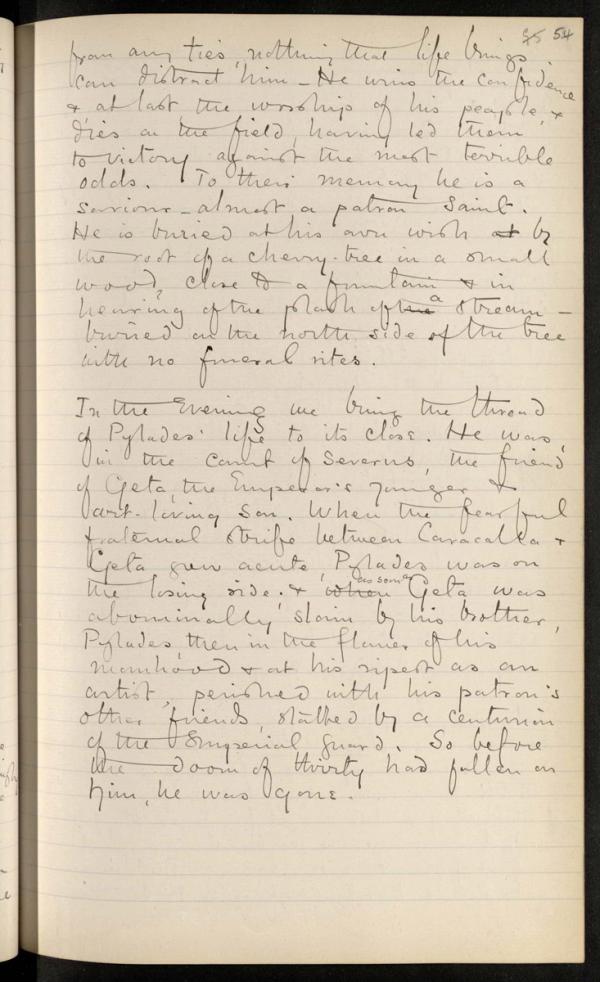 55 54
from any ties, nothing that life brings
can distract him - He wins the confidence
& at last the worship of his people, &
dies on the field, having led them
to victory against the most terrible
odds. To their memory he is a
saviour - almost a patron saint.
He is buried at his own wish at by
the root of a cherry-tree in a small
wood, close to a fountain & in
hearing of the plash of the a stream -
buried on the north side of the tree
with no funeral rites.
In the Evening we bring the thread
of Pylades' life to its close. He was,
in the Court of Severus, the friend
of Geta, the Emperor's younger &
art-loving son. When the fearful
fraternal strife between Caracalla &
Geta grew acute, Pylades was on
the losing side; & when as soon as Geta was
abominably slain by his brother,
Pylades, then in the flower of his
manhood & at his ripest as an
artist, perished with his patron's
other friends, stabbed by a centurion
of the Emperial guard. So before
the doom of thirty had fallen on
him, he was gone.